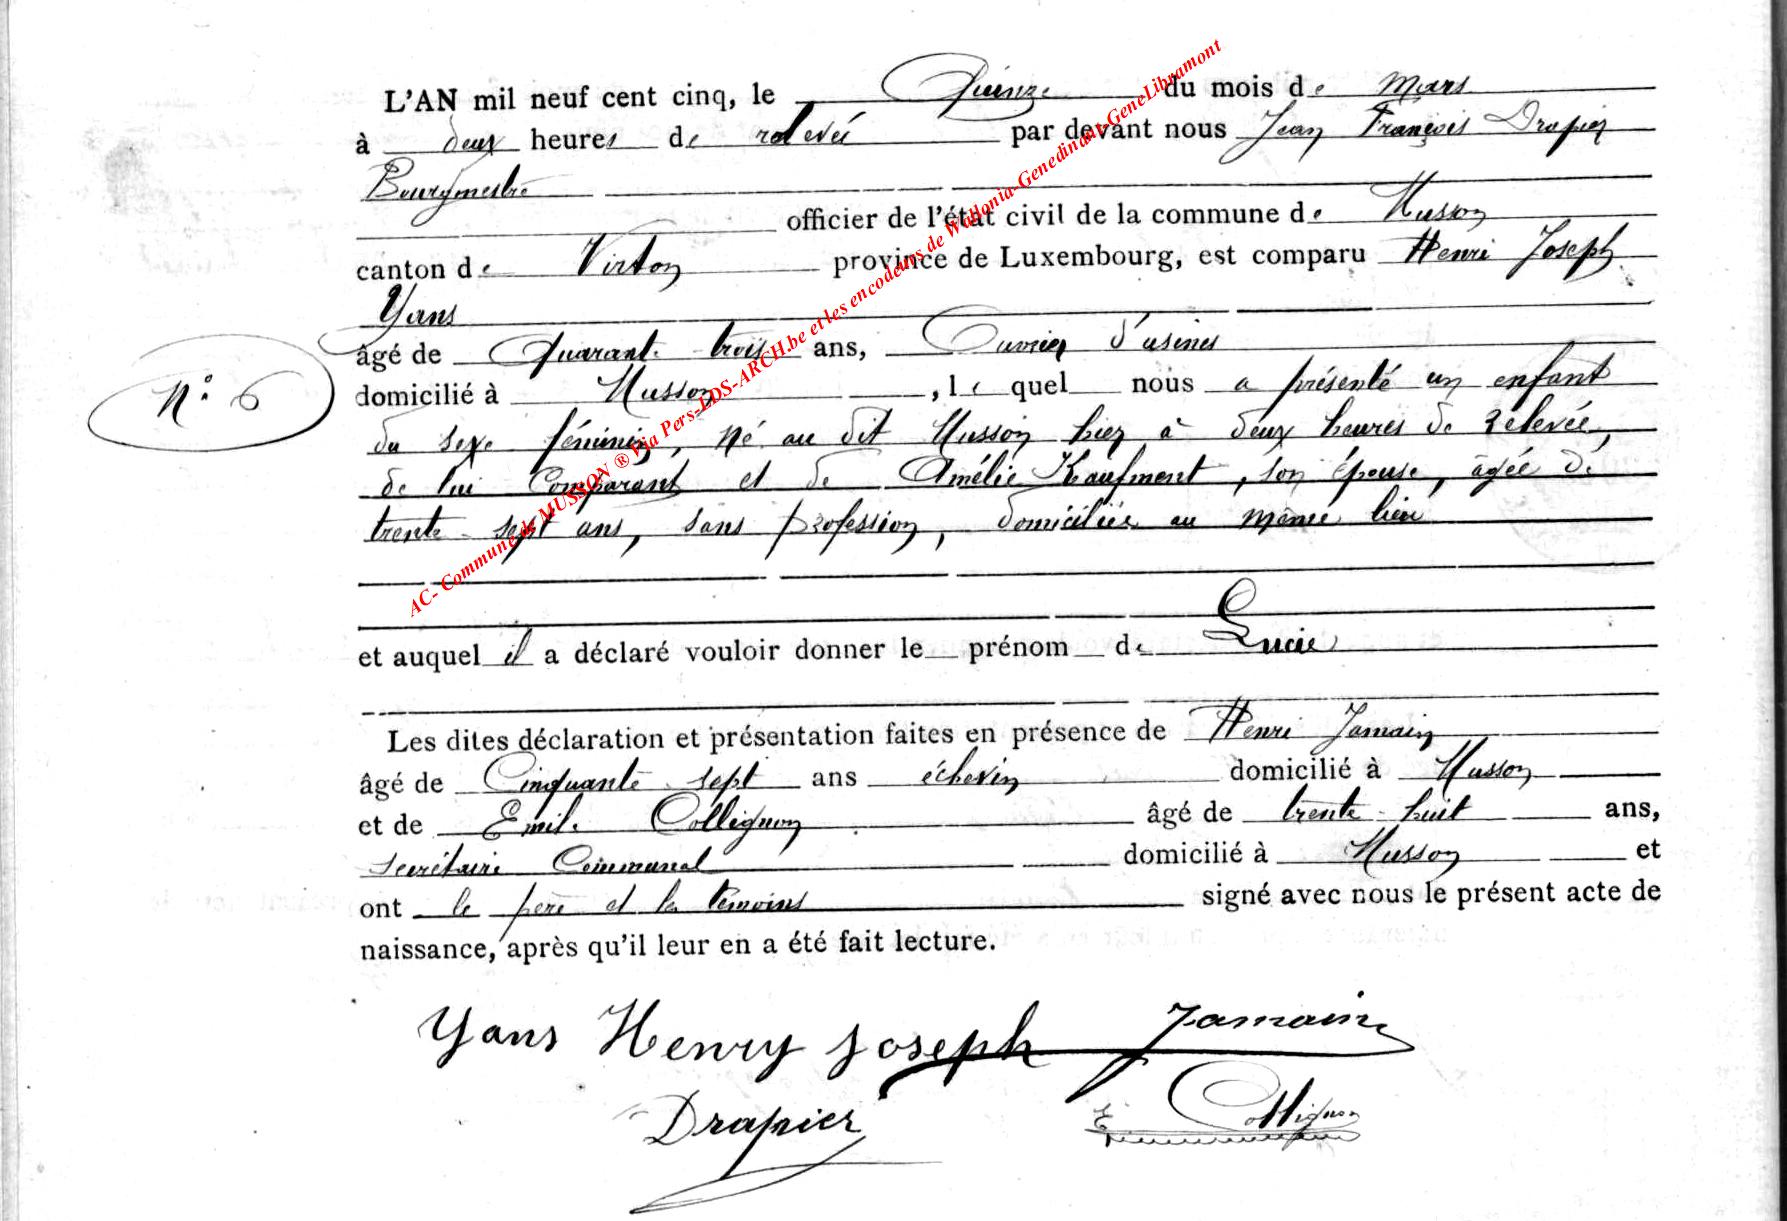 L'AN mil neuf cent cinq, le Quinze du mois de Mars
à deux heures de relevée par devant nous Jean François Drapier
Bourgmestre
officier de l'état civil de la commune de Musson
canton de Virton province de Luxembourg, est comparu Henri Joseph
Yans
âgé de Quarante-trois ans, Ouvrier d'usines
N° 6
domicilié à Musson, lequel nous a présenté un enfant
du sexe féminin, né au dit Musson hier à deux heures de relevée,
de lui Comparant et de Amélie Kaufment, son épouse, âgée de
trente-sept ans, sans profession, domiciliée au même lieu
et auquel il a déclaré vouloir donner le prénom de Lucie
Les dites déclaration et présentation faites en présence de Henri Jamain
âgé de Cinquante sept ans échevin domicilié à Musson
et de Emile Collignon âgé de trente-huit ans,
secrétaire Communal domicilié à Musson et
ont le père et les témoins signé avec nous le présent acte de
naissance, après qu'il leur en a été fait lecture.
Yans Henry Joseph Jamain
Drapier E Collignon
AC- Commune de MUSSON ® Via Pers-LDS-ARCH.be et les encodeurs de Wallonia-Genedinant-GeneLibramont